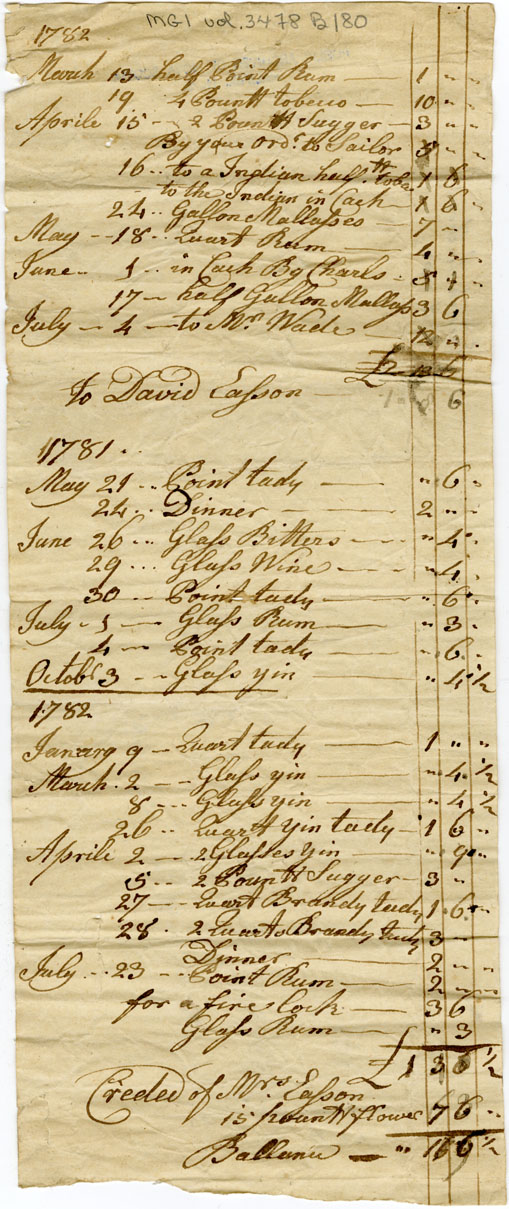 MG1 vol. 3478 B/80
1782
March 13 half Point Rum — 1 " "
19 4 Pountt tobeco — 10 " "
Aprile 15 — 2 Pountt Sugger — 3 " "
By your Ordr to Sailor
16 .. to a Indian half tt toba 1 6
to the Indian in Cach — 1 6
24 .. Gallon Mallasses — 7 "
May — 18 .. Quart Rum — 4 "
June .. 1 .. in Cach By Charls
17 — half Gallon Mallass 3 6
July — 4 — to Mr Wade 12 "
£
To David Easson — 6
1781 ..
May 21 .. Point tady — " 6 "
24 .. Dinner — 2 " "
June 26 .. Glass Bitters — " 4 "
29 .. Glass Wine — " 4 "
30 — Point tady — " 6 "
July — 1 — Glass Rum — " 3 "
4 — Point tady — " 6 "
Octobr 3 — Glass yin — " 4 1/2
1782
Janarg 9 — Quart tady — 1 " "
March . 2 — Glass yin — " 4 1/2
8 — Glass yin — " 4 1/2
26 .. Quart yin tady — 1 6 "
Aprile 2 — 2 Glasses yin — " 9 "
5 — 2 Pountt Sugger — 3 "
27 — Quart Brandy tady 1 6 "
28 . 2 Quarts Brandy tady 3 —
Dinner — 2 " "
July — 23 — Point Rum — 2 " "
for a fire lock — 3 6
Glass Rum — " 3
£1 3 6 1/2
Creded of Mrs Easson
15 pountt flower 7 6 "
Ballance — " 16 1/2